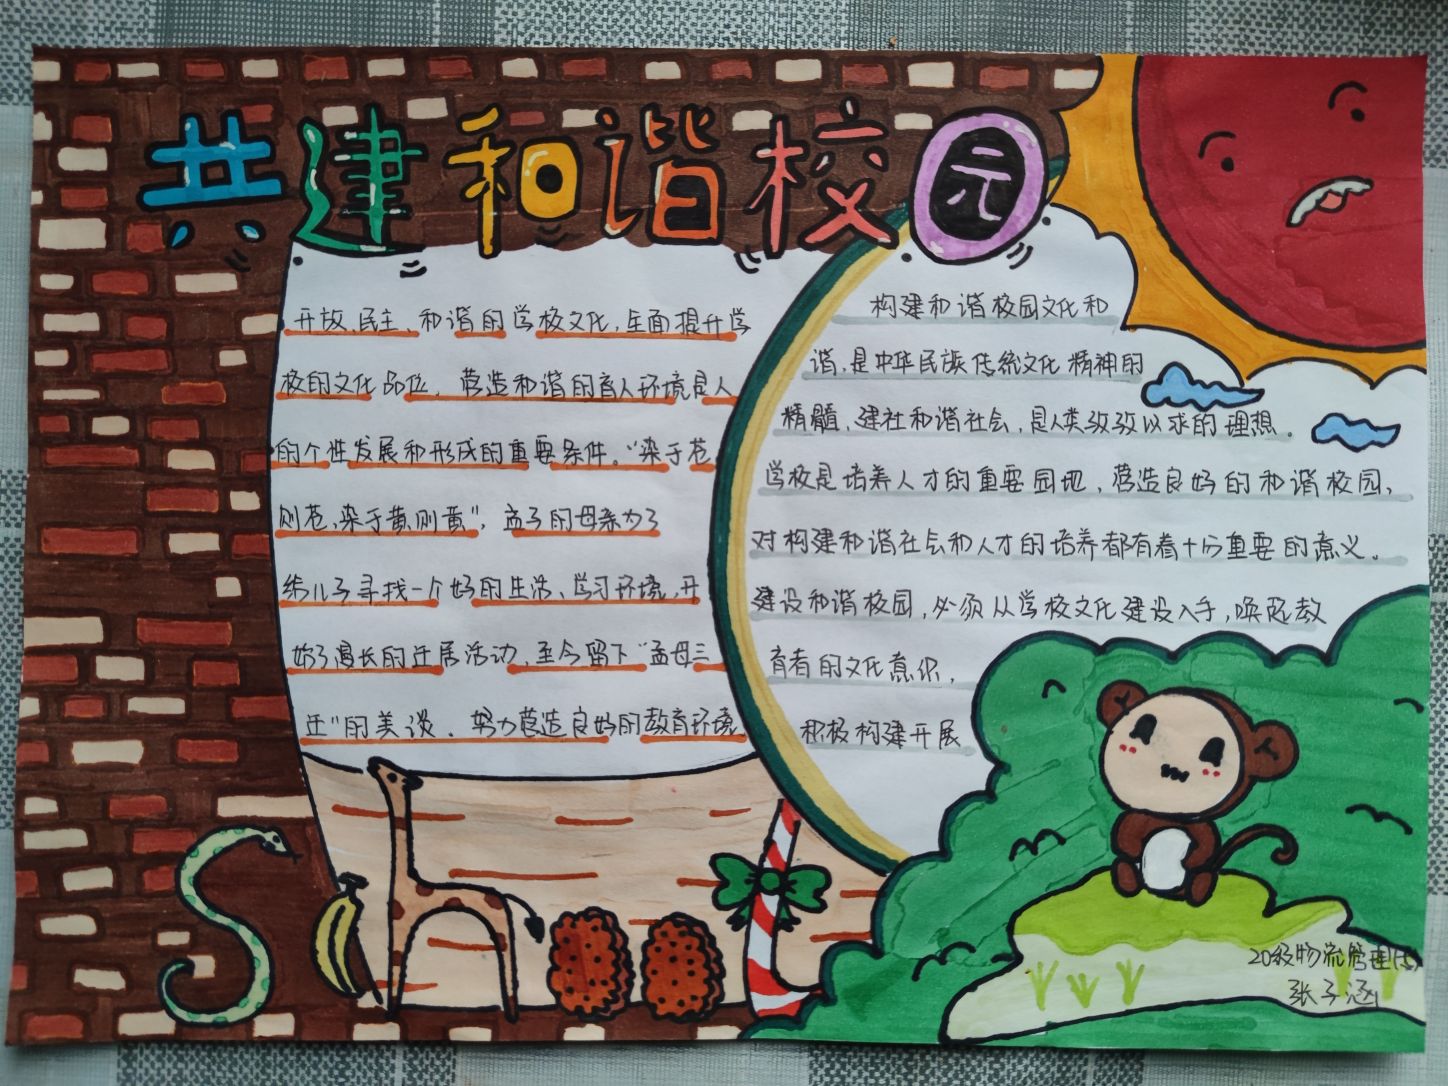 共建和谐校园
开放、民主、和谐的学校文化,全面提升学
校的文化品位。营造和谐的育人环境是人
的个性发展和形成的重要条件。“染于苍
则苍,染于黄则黄”,孟子的母亲为了
给儿子寻找一个好的生活、学习环境,开
始了漫长的迁居活动,至今留下“孟母三
迁”的美谈。努力营造良好的教育环境
构建和谐校园文化和
谐,是中华民族传统文化精神的
精髓,建社和谐社会,是人类孜孜以求的理想。
学校是培养人才的重要园地,营造良好的和谐校园,
对构建和谐社会和人才的培养都有着十分重要的意义。
建设和谐校园,必须从学校文化建设入手,唤起教
育者的文化意识,
积极构建开展
20级物流管理
张子涵